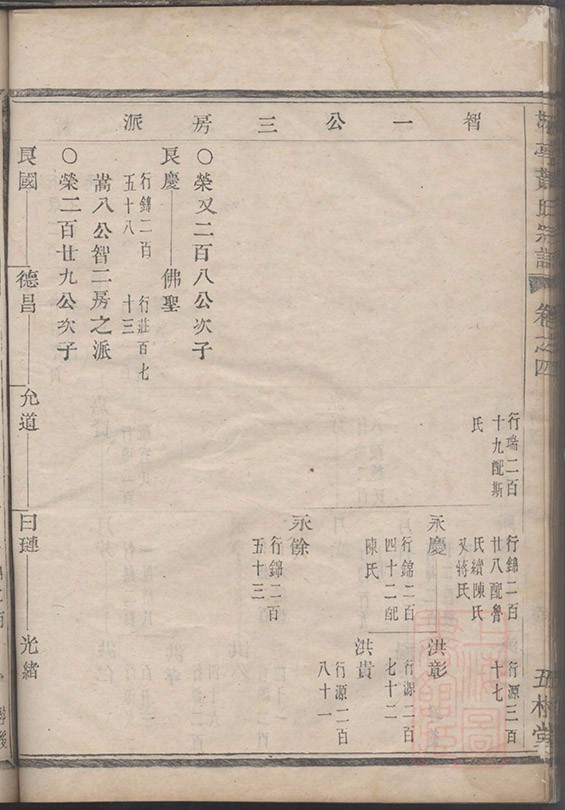 氏宗譜
卷之四
智一公三房派
行瑞二百
十九配斯
氏
行錦二百
廿八配魯
氏續陳氏
又蔣氏
行源三百
十七
永慶
洪彰
行錦二百
四十二配
陳氏
行源二百
七十二
洪貴
行源二百
八十一
永餘
行錦二百
五十三
○榮又二百八公次子
長慶
佛聖
行錦二百
五十八
行莊百七
十三
嵩八公智二房之派
○榮二百廿九公次子
艮國
德昌
允道
曰璉
光緒